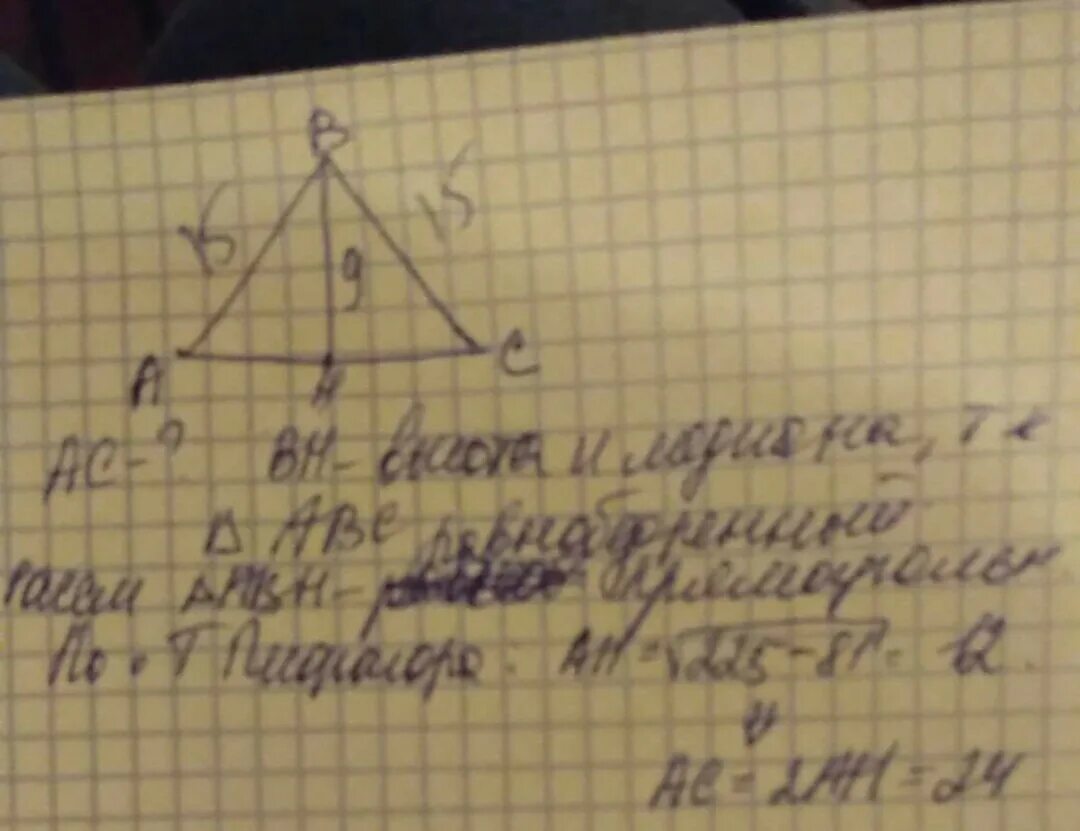 B
15 15
9
A H C
AC-? BH- высота и медиана, т к
Δ ABC равнобедренный
ΔABH- прямоуголь
По Т Пифагора: AH = √225-81 = 12.
⇓
AC = 2AH = 24